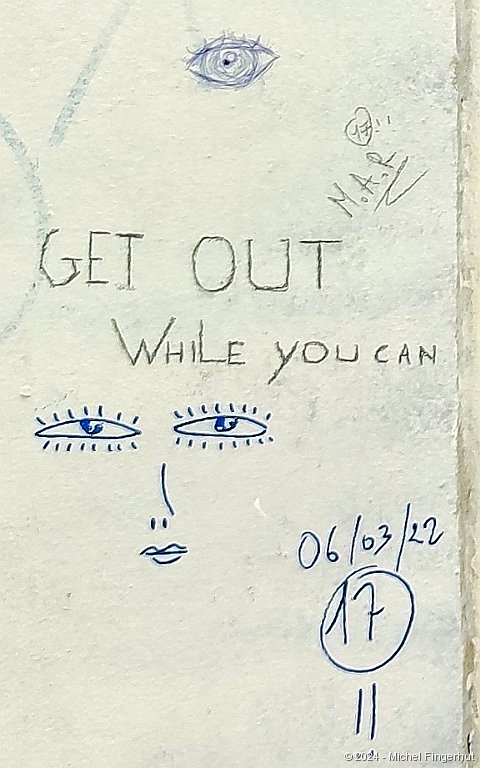 17!!
M.A.R
GET OUT
WHiLE YOU CAN
06/03/22
17
!!
© 2024 - Michel Fingerhut